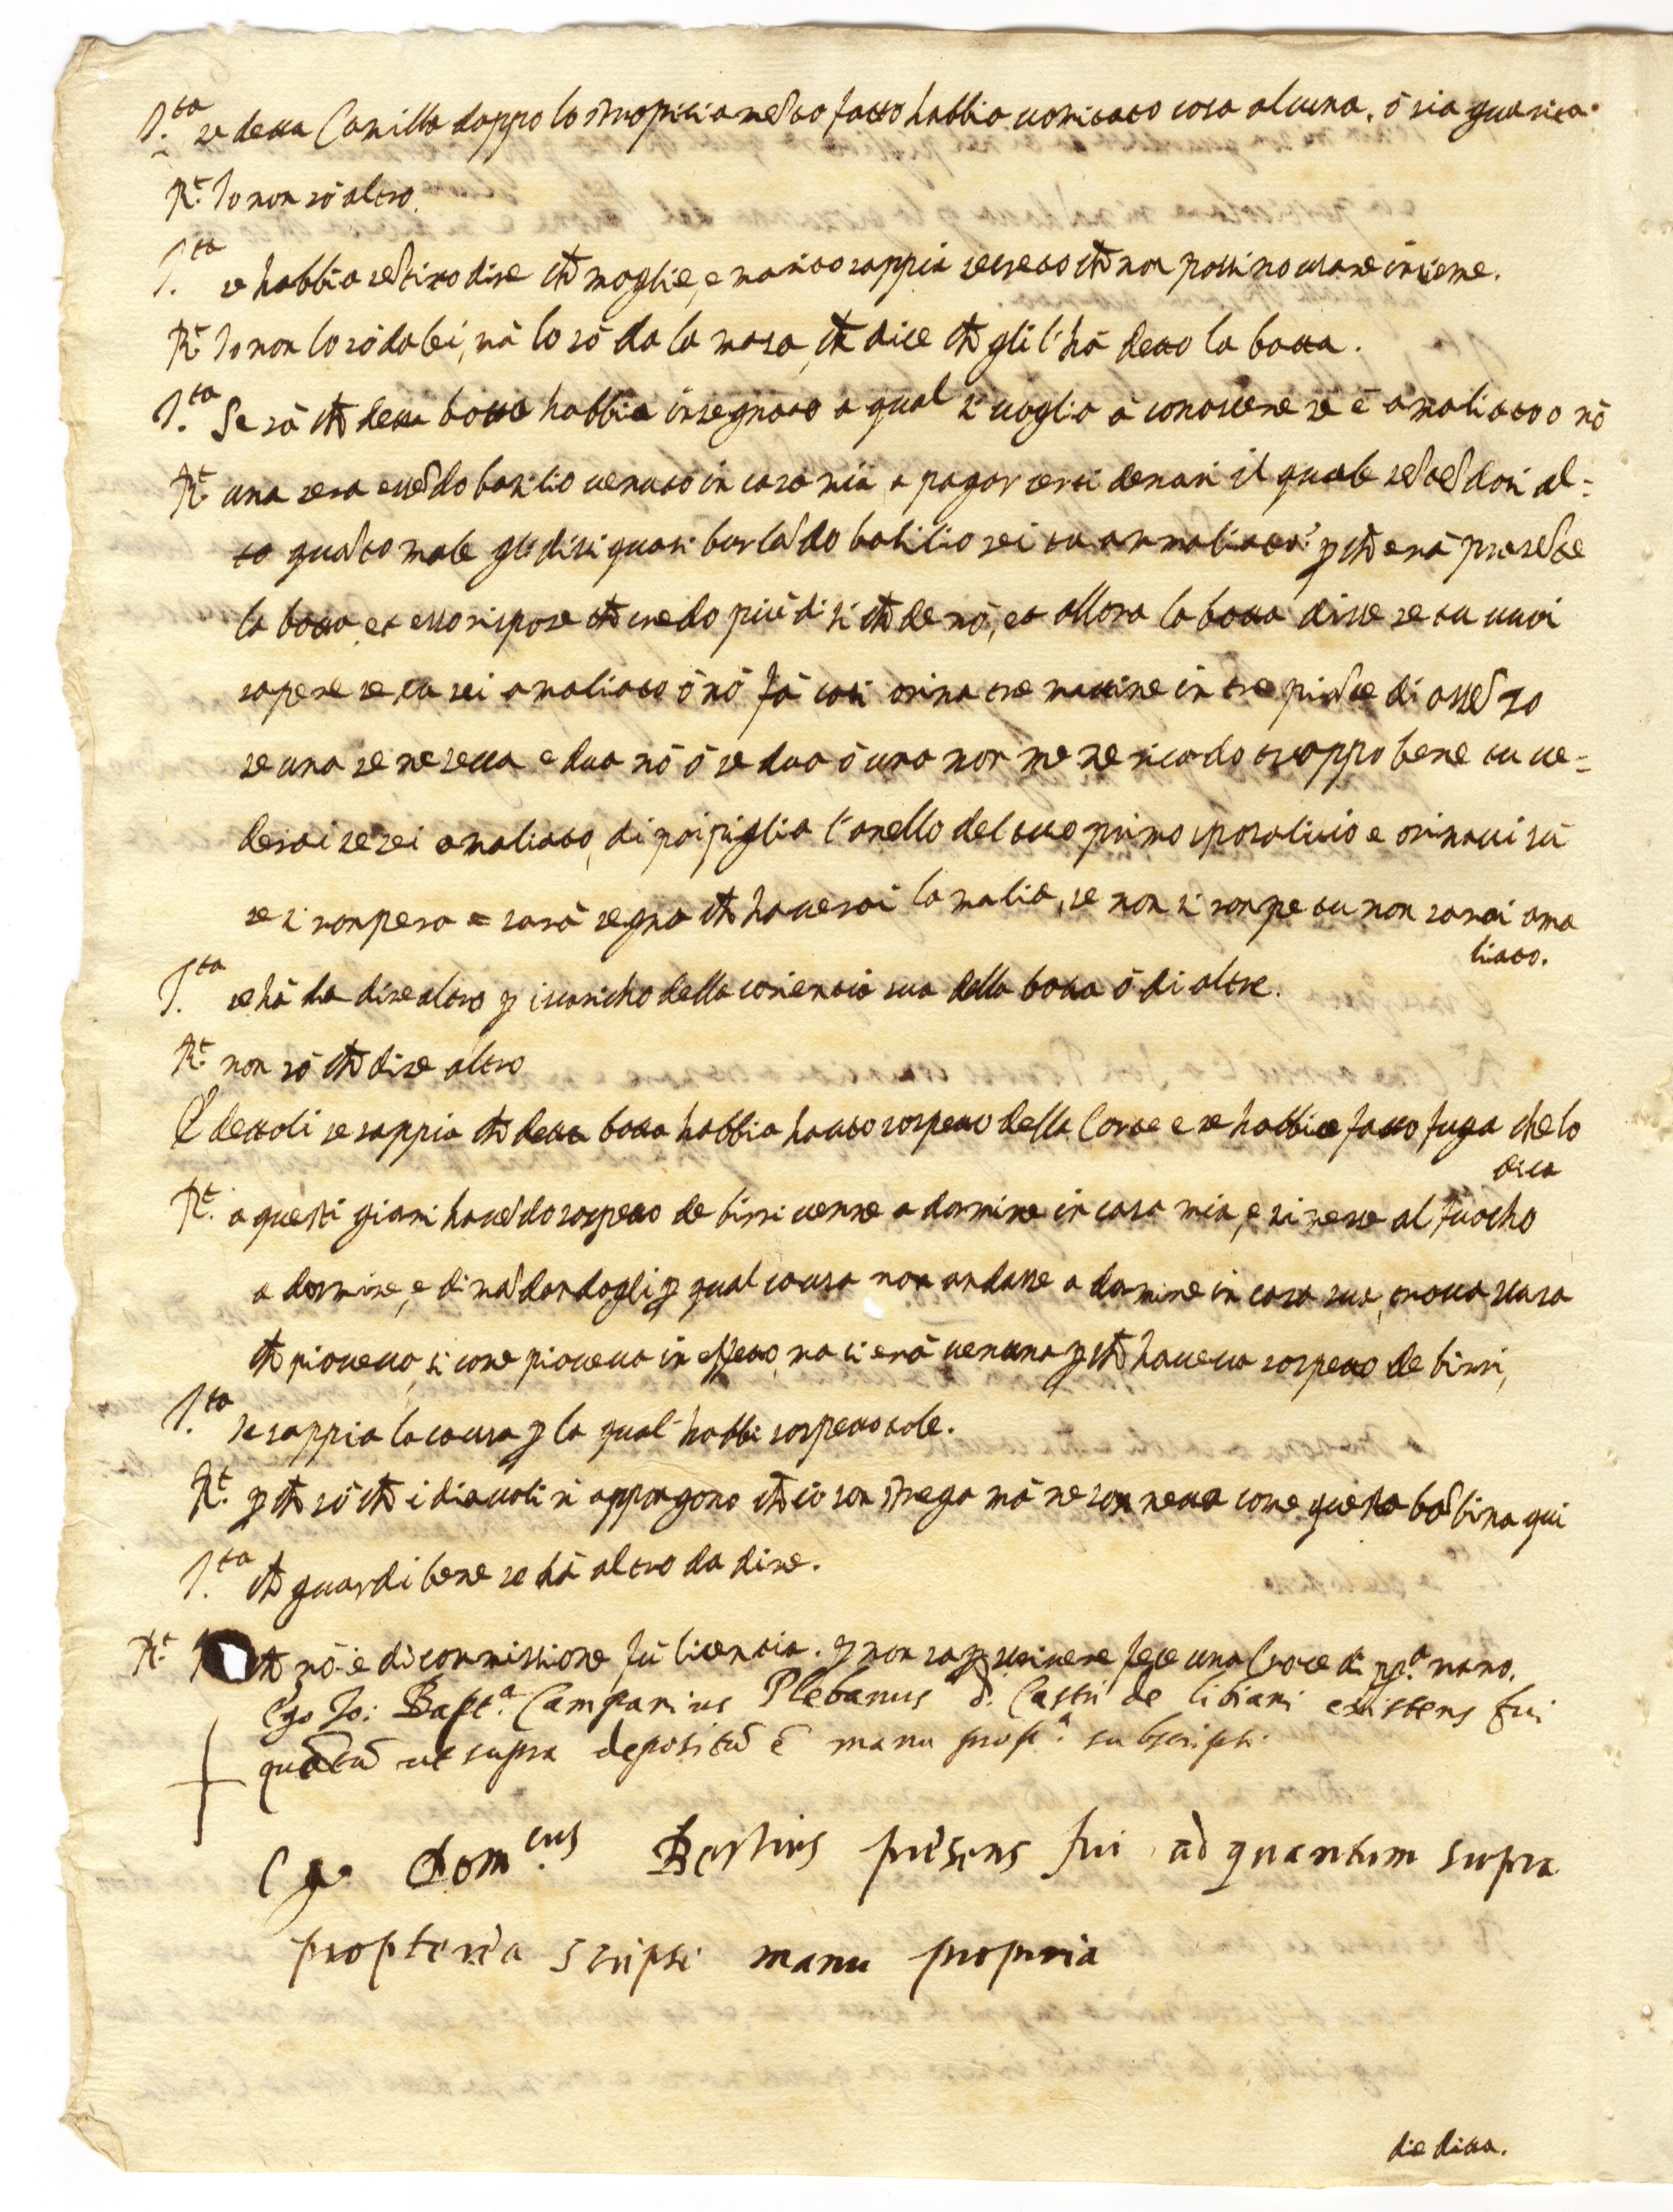 I.ta se detta Camilla doppo lo stropiciamẽto fatto habbia vomitato cosa alcuna, ò sia guarita.
R.t Io non sò altro.
I.ta se habbia sẽtito dire ch̃ moglie, e marito sappia secreto ch̃ non possino usare insieme.
R.t Io non lo sò da lei, mà lo sò da la masa, ch̃ dice ch̃ gli l'hà detto la botta.
I.ta Se sà ch̃ detta botta habbia insegnato a qual si voglia à conoscere se è amaliato o nò
R.t una sera essẽdo basilio venuto in casa mia a pagar certi denari il quale sẽtẽdosi al=
to quãto male gli dissi quasi burlãdo basilio sei tu ammaliato? p ch̃ erà presẽte
la botta et esso rispose ch̃ credo più di si ch̃ de nò, et allora la botta disse se tu vuoi
sapere se tu sei amaliato ò nò fà cosi orina tre mattine in tre piãte di assẽzo
se una se ne secca e dua nò ò se dua ò una non me ne ricordo troppo bene tu ve=
derai se sei amaliato, di poi piglia l'anello del tuo primo sposalitio e orinavi sù
se si rompera e sarà segno ch̃ haverai la malia, se non si rompe tu non sarai ama
liato.
I.ta se hà da dire altro p iscaricho della coscienza sua della botta ò di altre.
R.t non sò ch̃ dire altro
E dettoli se sappia ch̃ detta botta habbia hauto sospetto della Corte e se habbia fatto fuga che lo
dica
R.t a questi giorni havẽdo sospetto de birri venne a dormire in casa mia, e si messe al fuocho
a dormire, e dimãdandogli p qual causa non andasse a dormire in casa sua, trova scusa
ch̃ pioveva, si come pioveva in effetto, ma ci erà venuta p ch̃ haveva sospetto de birri,
I.ta se sappia la causa p la qual habbi sospetto tale.
R.t p ch̃ sò ch̃ i diavoli mi appongono ch̃ io son strega mà ne son netta come questa bãbina qui
I.ta ch̃ guardi bene se hà altro da dire.
R.t ch̃ nò. e di commissione fù licentia. p non sap scrivere fece una Croce di pp.a mano.
Ego Jo: Bapt.a Camparius Plebanus d. Castri de libiani existens fui
quãtũ ut supra depositũ è manu prop.a subscripsi.
Ego Dom.cus Bertius presens fui ad quantum supra
propterea scripsi manu propria
die dicta.